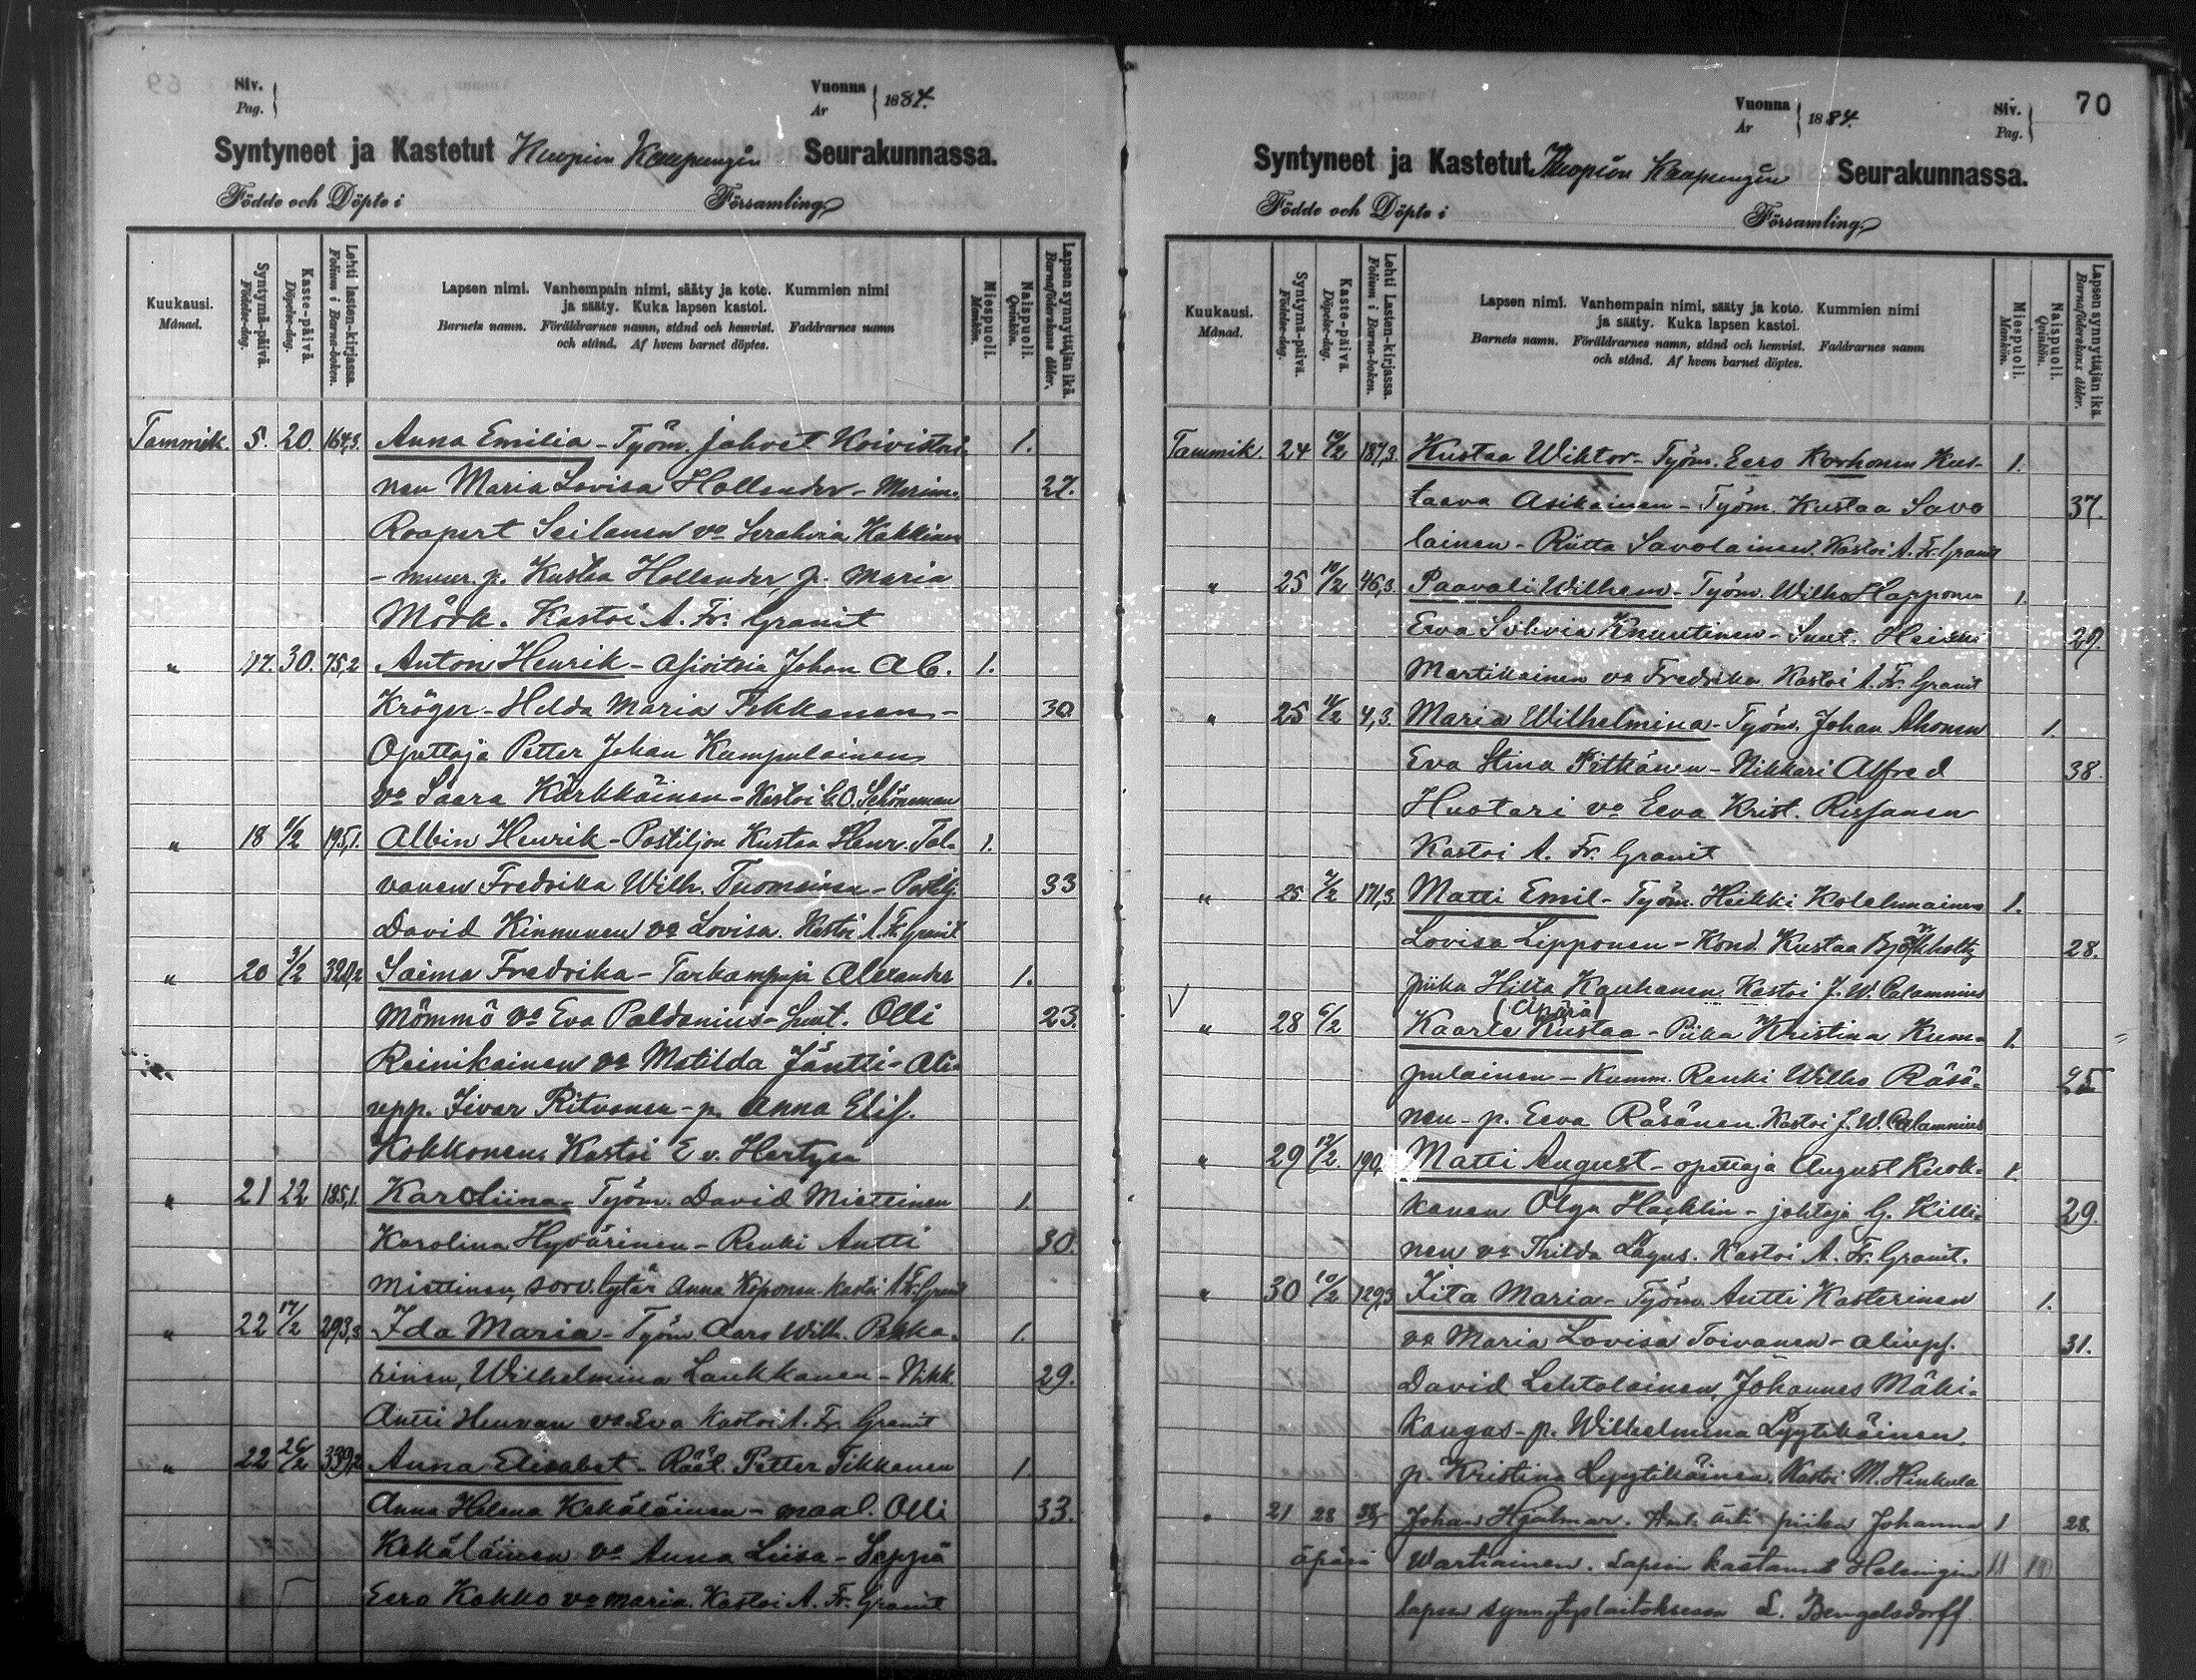 69
Siv.
Pag.
Vuonna
År
1884.
Syntyneet ja Kastetut Kuopion Kaupungin Seurakunnassa.
Födde och Döpte i Församling
Kuukausi.
Månad.
Syntymä-päivä.
Födelse-dag.
Kaste-päivä.
Döpelse-dag.
Lehti lasten-kirjassa.
Folium i Barna-boken.
Lapsen nimi. Vanhempain nimi, sääty ja koto. Kummien nimi
ja sääty. Kuka lapsen kastoi.
Barnets namn. Föräldrarnes namn, stånd och hemvist. Faddrarnes namn
och stånd. Af hvem barnet döptes.
Miespuoli.
Mankön.
Naispuoli.
Qvinkön.
Lapsen synnyttäjän ikä.
Barnaföderskans ålder.
Tammik. 5. 20. 164,3. Anna Emilia - Työm. Jahvet Koivistoi- 1.
nen Maria Lovisa Hollender - Merim. 27.
Roopert Seilonen vo Serahvia Hakkinen
- muur. p. Kustaa Hollender, p. Maria
Mörk. Kastoi A. Fr. Granit
" 17. 30. 75,2 Anton Henrik - Ajoitsia Johan Alb. 1.
Kröger - Helda Maria Tikkanen - 30
Opettaja Petter Johan Kumpulainen
vo Saara Kärkkäinen - Kastoi C. O. Schöneman
" 18 11/2 195,1. Albin Henrik - Postiljon Kustaa Henr. Tol- 1.
vanen Fredrika Wilh. Tuomainen - Postilj. 33
David Kinnunen vo Lovisa. Kastoi A. Fr. Granit
" 20 3/2 320,2 Saima Fredrika - Tarkampuja Alexander 1.
Mömmö vo Eva Paldanius - Suut. Olli 23.
Reinikainen vo Matilda Jäntti - Ali-
upp. Iivar Ritvanen - p. Anna Elis.
Kokkonen, Kastoi E v. Hertzen
" 21 22 185,1. Karoliina - Työm. David Miettinen 1.
Karolina Hyvärinen - Renki Antti 30.
Miettinen, sorv. lytär Anna Koponen. Kastoi A Fr. Granit
" 22 17/2 293,3 Ida Maria - Työm Aaro Wilh. Pekka- 1.
rinen, Wilhelmina Laukkanen - Nikk. 29.
Antti Heuvan vo Eva Kastoi A. Fr. Granit
" 22 26/2 339,2 Anna Elisabet - Räät. Petter Tikkanen 1.
Anna Helena Kekäläinen - maal. Olli 33.
Kekäläinen vo Anna Liisa - Seppä
Eero Kokko vo Maria. Kastoi A. Fr. Granit
Vuonna
År
1884.
Siv.
Pag.
70
Syntyneet ja Kastetut Kuopion Kaupungin Seurakunnassa.
Födde och Döpte i Församling.
Kuukausi.
Månad.
Syntymä-päivä.
Födelse-dag.
Kaste-päivä.
Döpelse-dag.
Lehti Lasten-kirjassa.
Folium i Barna-boken.
Lapsen nimi. Vanhempain nimi, sääty ja koto. Kummien nimi
ja sääty. Kuka lapsen kastoi.
Barnets namn. Föräldrarnes namn, stånd och hemvist. Faddrarnes namn
och stånd. Af hvem barnet döptes.
Miespuoli.
Mankön.
Naispuoli.
Qvinkön.
Lapsen synnyttäjän ikä.
Barnaföderskans ålder.
Tammik. 24 10/2 187,3. Kustaa Wiktor - Työm. Eero Korhonen Kus- 1.
taava Asikainen - Työm. Kustaa Savo 37.
lainen - Riitta Savolainen. Kastoi A. Fr. Granit
" 25 10/2 46,3. Paavali Wilhem - Työm. Wilho Happonen 1.
Eeva Sohvia Knuutinen - Suut. Heikki 29.
Martikainen vo Fredrika Kastoi A. Fr. Granit
" 25 4,3. Maria Wilhelmina - Työm. Johan Ahonen 1.
Eva Stina Pitkänen - Nikkari Alfred 38.
Huotari vo Eeva Krist. Rissanen
Kastoi A. Fr. Granit
" 25 7/2 171,3 Matti Emil - Työm. Heikki Kolehmainen 1.
Lovisa Lepponen - Kond. Kustaa Björkholtz 28.
piika Hilta Kauhanen Kastoi J. W. Calamnius
(Äpärä)
V " 28 6/2 Kaarle Kustaa - Piika Kristina Kum- 1.
pulainen - Kumm. Renki Wilho Räsä- 25
nen - p. Eeva Räsänen. Kastoi J. W. Calamnius
" 29 12/2. 190, Matti August - opettaja August Kuok- 1.
kanen Olga Hacklin - johtaja G. Killi- 29.
nen vo Thilda Lagus. Kastoi A. Fr. Granit.
" 30 10/2 129,3 Iita Maria - Työm. Antti Kasterinen 1.
vo Maria Lovisa Toivanen - aliups. 31.
David Lehtolainen, Johannes Mäki-
kangas - p. Wilhelmina Lyytikäinen,
p. Kristina Lyytikäinen. Kastoi M. Hinkula
" 21 28 Johan Hjalmar. äiti piika Johanna 1 28.
äpärä Wartiainen. Lapsen kastanut Helsingin
lapsen synnytyslaitoksessa L. Bengelsdorff